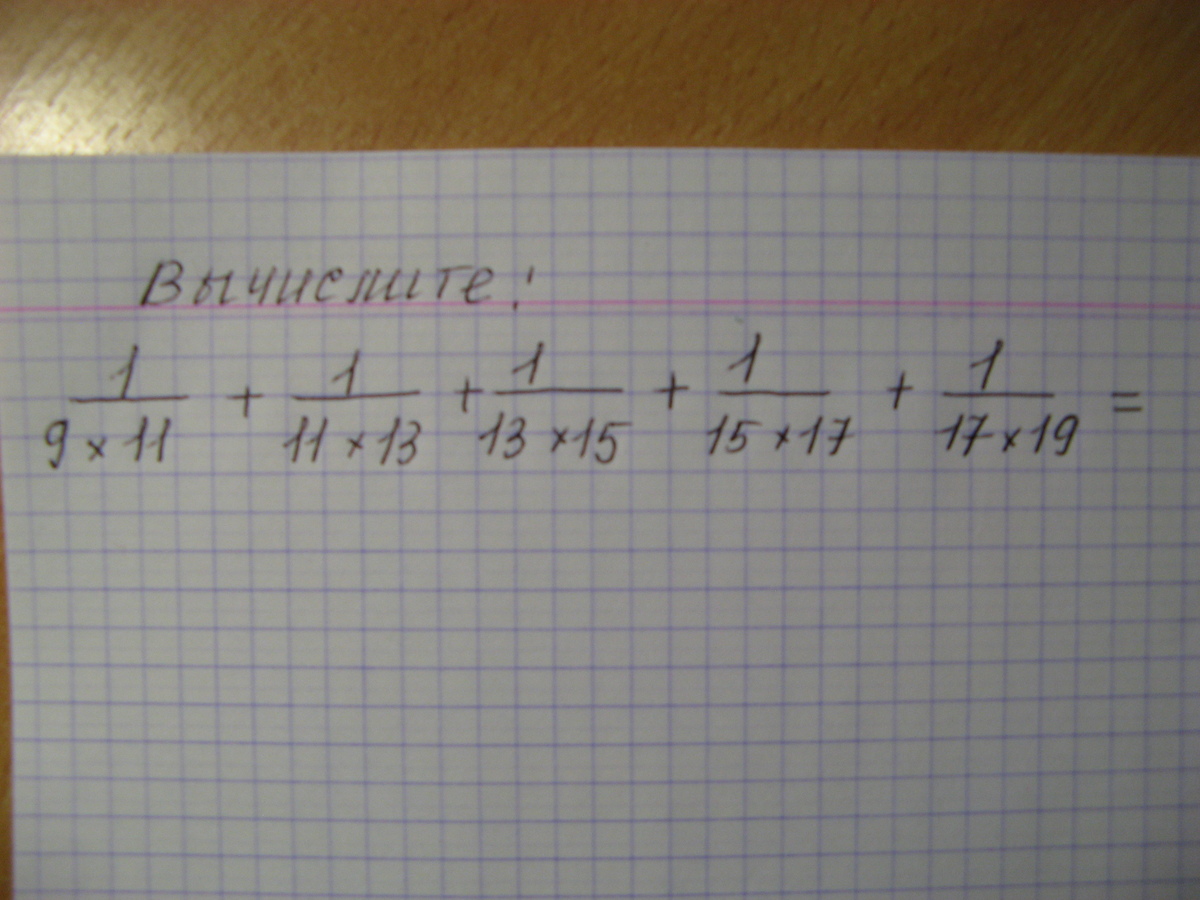 Вычислите:
1/(9 × 11) + 1/(11 × 13) + 1/(13 × 15) + 1/(15 × 17) + 1/(17 × 19) =